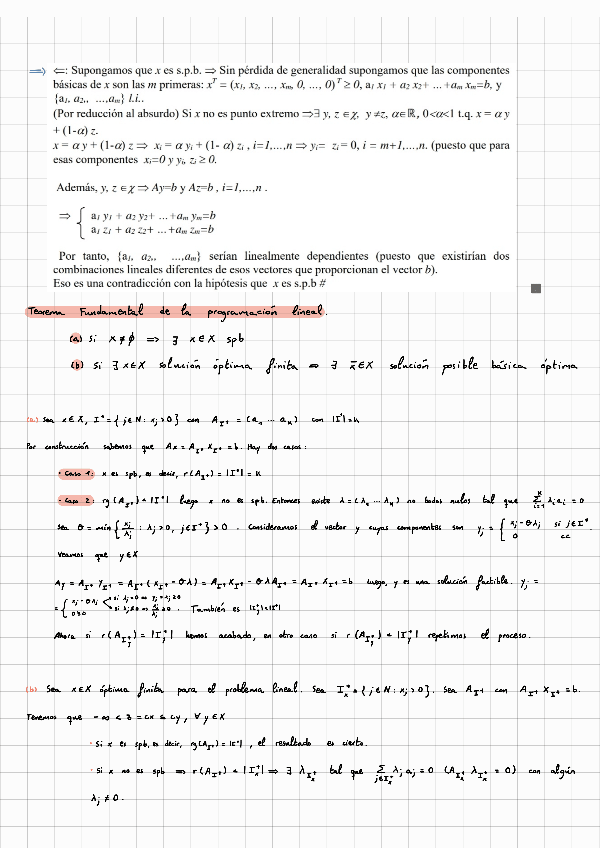 ⇒ ⇐: Supongamos que x es s.p.b. ⇒ Sin pérdida de generalidad supongamos que las componentes
básicas de x son las m primeras: xᵀ = (x₁, x₂, ..., xₘ, 0, ..., 0)ᵀ ≥ 0, a₁ x₁ + a₂ x₂+ ... +aₘ xₘ=b, y
{a₁, a₂,, ...,aₘ} l.i..
(Por reducción al absurdo) Si x no es punto extremo ⇒∃ y, z ∈χ, y ≠z, α∈ℝ, 0<α<1 t.q. x = α y
+ (1-α) z.
x = α y + (1-α) z ⇒ xᵢ = α yᵢ + (1- α) zᵢ , i=1,...,n ⇒ yᵢ= zᵢ = 0, i = m+1,...,n. (puesto que para
esas componentes xᵢ=0 y yᵢ, zᵢ ≥ 0.
Además, y, z ∈χ ⇒ Ay=b y Az=b , i=1,...,n .
⇒ { a₁ y₁ + a₂ y₂+ ... +aₘ yₘ=b
a₁ z₁ + a₂ z₂+ ... +aₘ zₘ=b
Por tanto, {a₁, a₂,, ...,aₘ} serían linealmente dependientes (puesto que existirían dos
combinaciones lineales diferentes de esos vectores que proporcionan el vector b).
Eso es una contradicción con la hipótesis que x es s.p.b #
Teorema Fundamental de la programación lineal.
(a) Si X ≠ ∅ ⇒ ∃ x ∈ X spb
(b) Si ∃ x ∈ X solución óptima finita ⇒ ∃ x̄ ∈ X solución posible básica óptima
(a) Sea x ∈ X, I⁺ = { j ∈ N : xⱼ > 0 } con A_I⁺ = (a₁ ... aₖ) con |I⁺| = K
Por construcción sabemos que Ax = A_I⁺ x_I⁺ = b. Hay dos casos:
· Caso 1: x es spb, es decir, r(A_I⁺) = |I⁺| = K
· Caso 2: rg(A_I⁺) < |I⁺| luego x no es spb. Entonces existe λ = (λ₁ ... λₖ) no todos nulos tal que Σᵢ₌₁ᴷ λᵢ aᵢ = 0
Sea θ = min { xⱼ/λⱼ : λⱼ > 0, j ∈ I⁺ } > 0 . Consideramos el vector y cuyas componentes son yⱼ = { xⱼ - θλⱼ si j ∈ I⁺
0 cc
Veamos que y ∈ X
Ay = A_I⁺ y_I⁺ = A_I⁺ (x_I⁺ - θλ) = A_I⁺ x_I⁺ - θλ A_I⁺ = A_I⁺ x_I⁺ = b luego, y es una solución factible. yⱼ =
= { xⱼ - θλⱼ si λⱼ = 0 ⇒ yⱼ = xⱼ ≥ 0
0 ≥ 0 . También es
Ahora si r(A_I⁺_y) = |I⁺_y| hemos acabado, en otro caso si r(A_I⁺_y) < |I⁺_y| repetimos el proceso.
(b) Sea x ∈ X óptima finita para el problema lineal. Sea I⁺ₓ = { j ∈ N : xⱼ > 0 }. Sea A_I⁺ con A_I⁺ x_I⁺ = b.
Tenemos que -∞ < z = cx ≤ cy, ∀ y ∈ X
· Si x es spb, es decir, rg(A_I⁺) = |I⁺| , el resultado es cierto.
· Si x no es spb ⇒ r(A_I⁺ₓ) < |I⁺ₓ| ⇒ ∃ λ_I⁺ₓ tal que Σ_{j∈I⁺ₓ} λⱼ aⱼ = 0 (A_I⁺ₓ λ_I⁺ₓ = 0) con algún
λⱼ ≠ 0 .